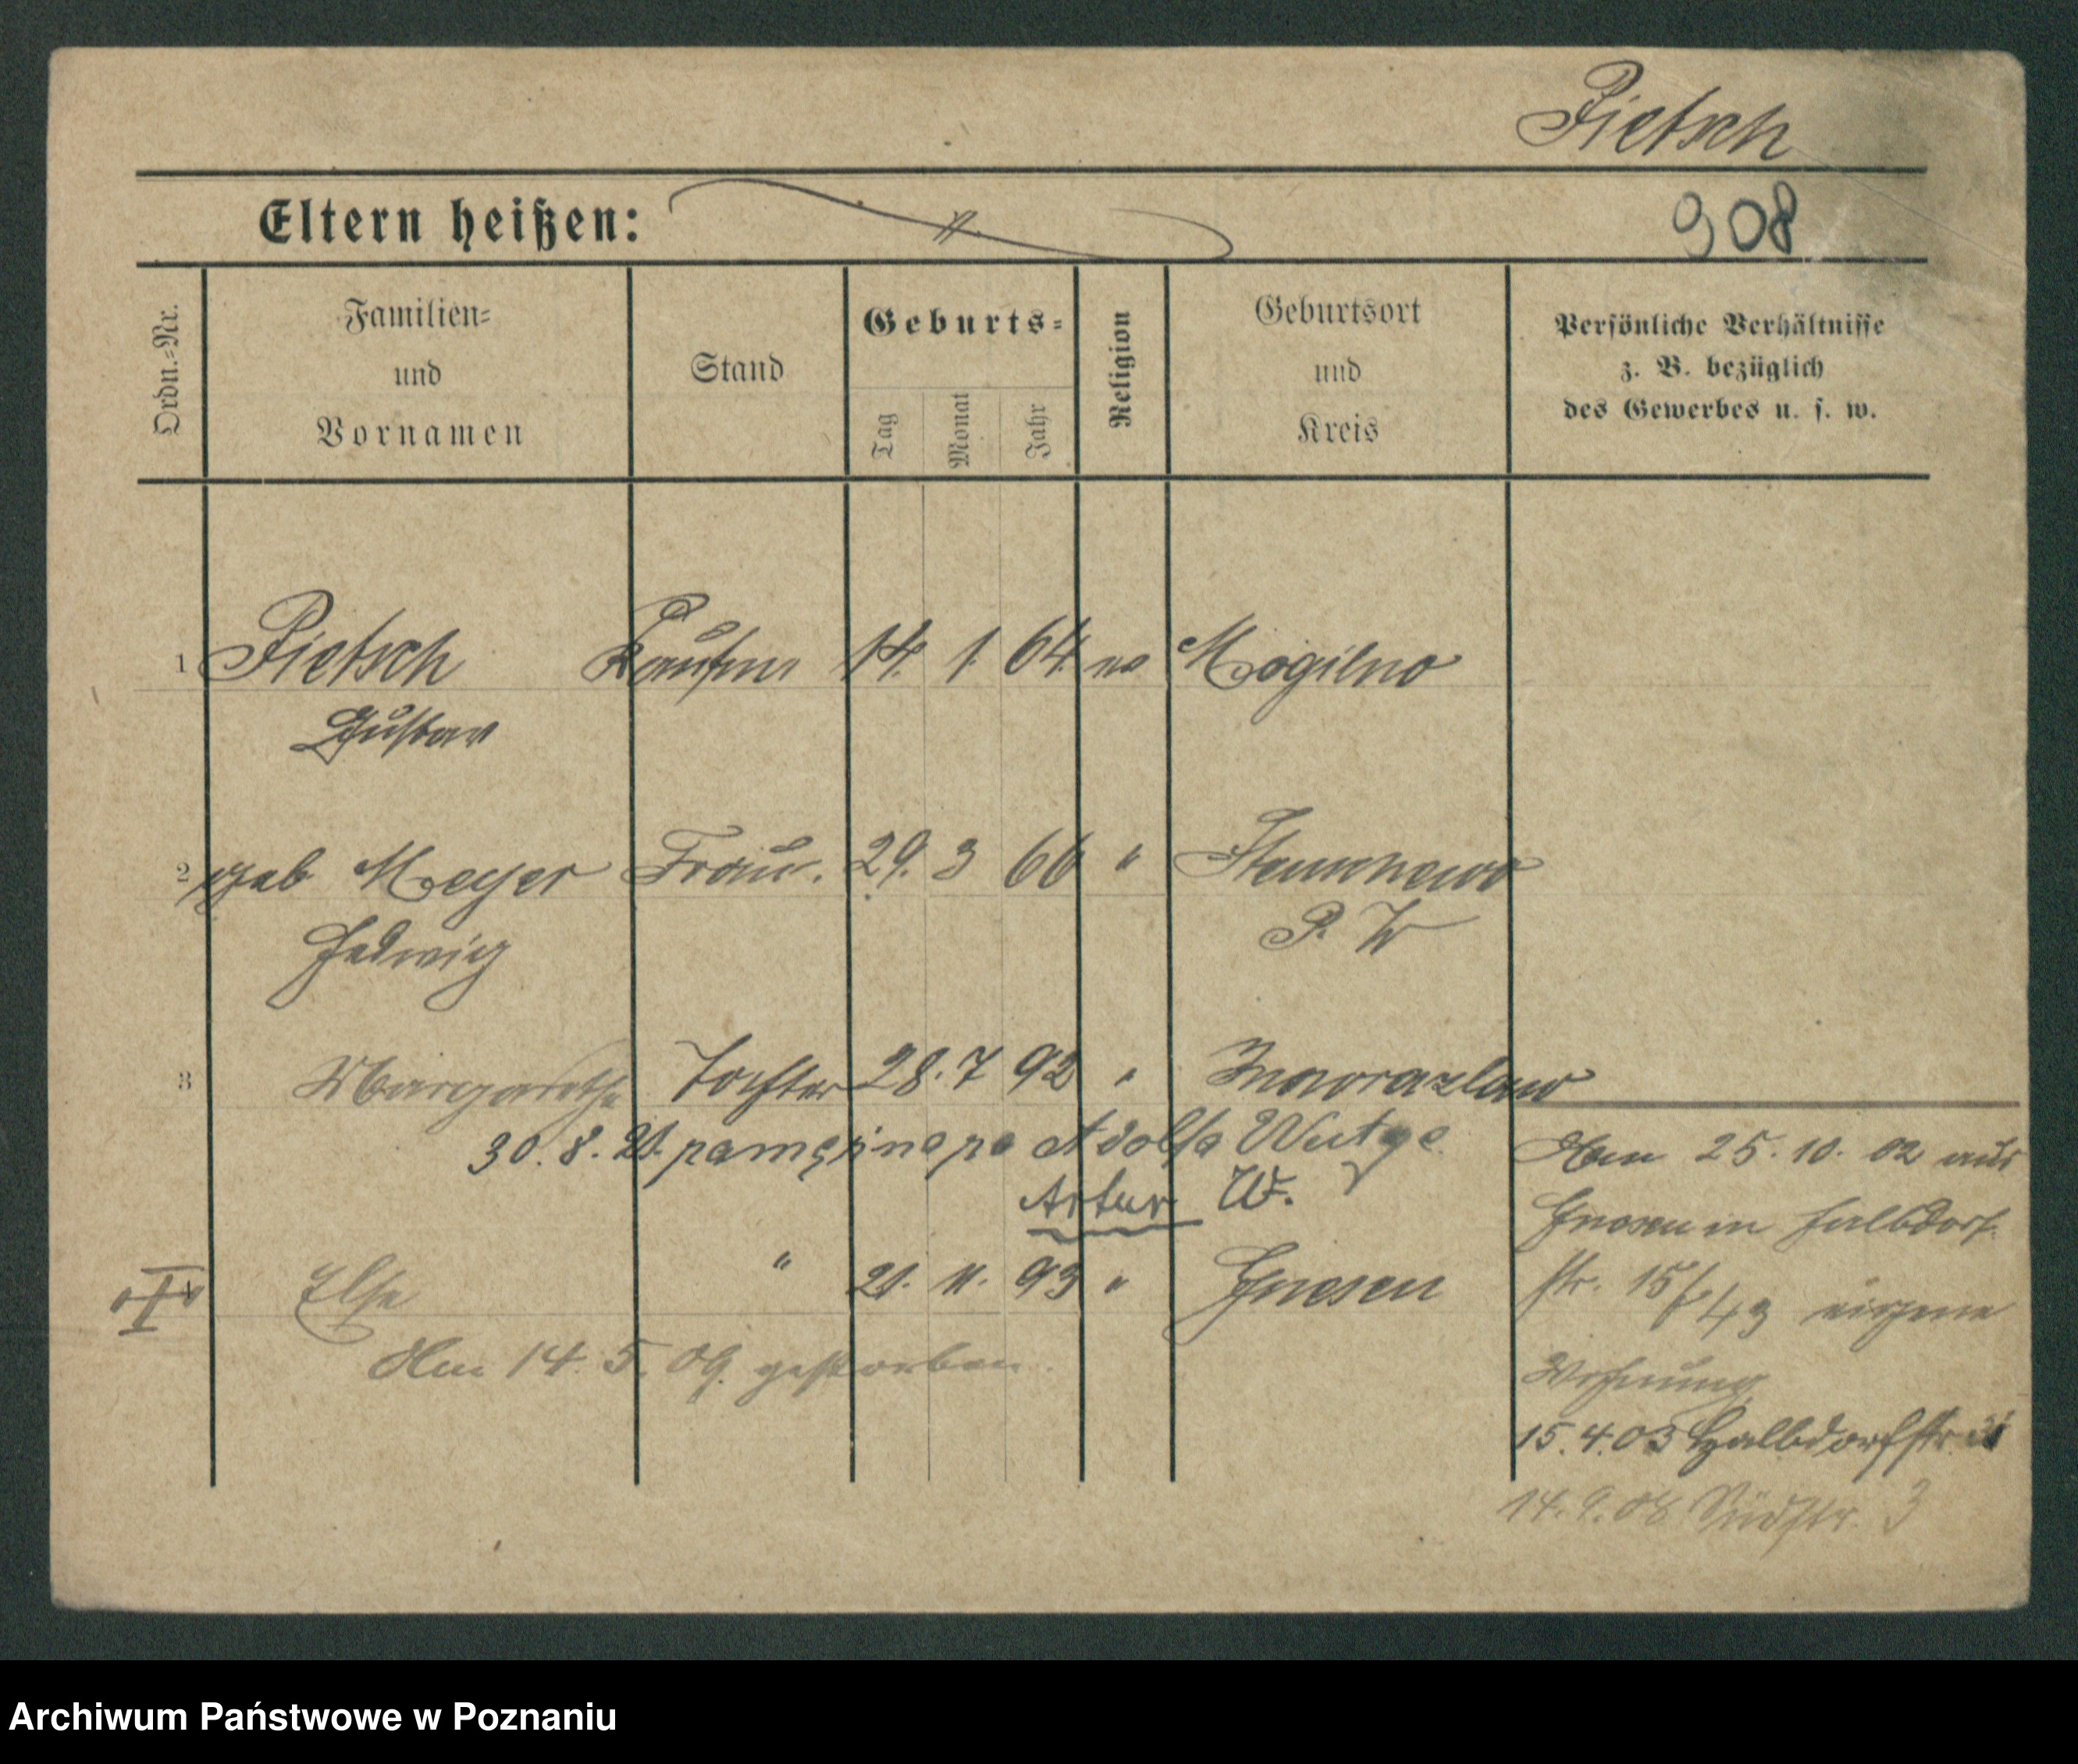 Pietsch
Eltern heißen:
908
Ordn.=Nr.
Familien=
und
Vornamen
Stand
Geburts=
Tag
Monat
Jahr
Religion
Geburtsort
und
Kreis
Persönliche Verhältnisse
z. B. bezüglich
des Gewerbes u. s. w.
1 Pietsch Kaufm 14. 1. 64. Mogilno
Gustav
2 geb Meyer Frau. 29. 3 66 "
Hedwig P. W
3 Margarethe Tochter 28. 7 92 " Inowrazlaw
30. 8. 21. zamężna za Adolfa Wutge
Artur W.
Else " 21. 11. 93 " Gnesen
Am 14. 5. 09. gestorben.
Am 25. 10. 02 aus
Gnesen in Halbdorf
str. 15/ 43 eigene
Wohnung
15. 4. 03 Halbdorfstr
14. 9. 08 Südstr. 3
Archiwum Państwowe w Poznaniu